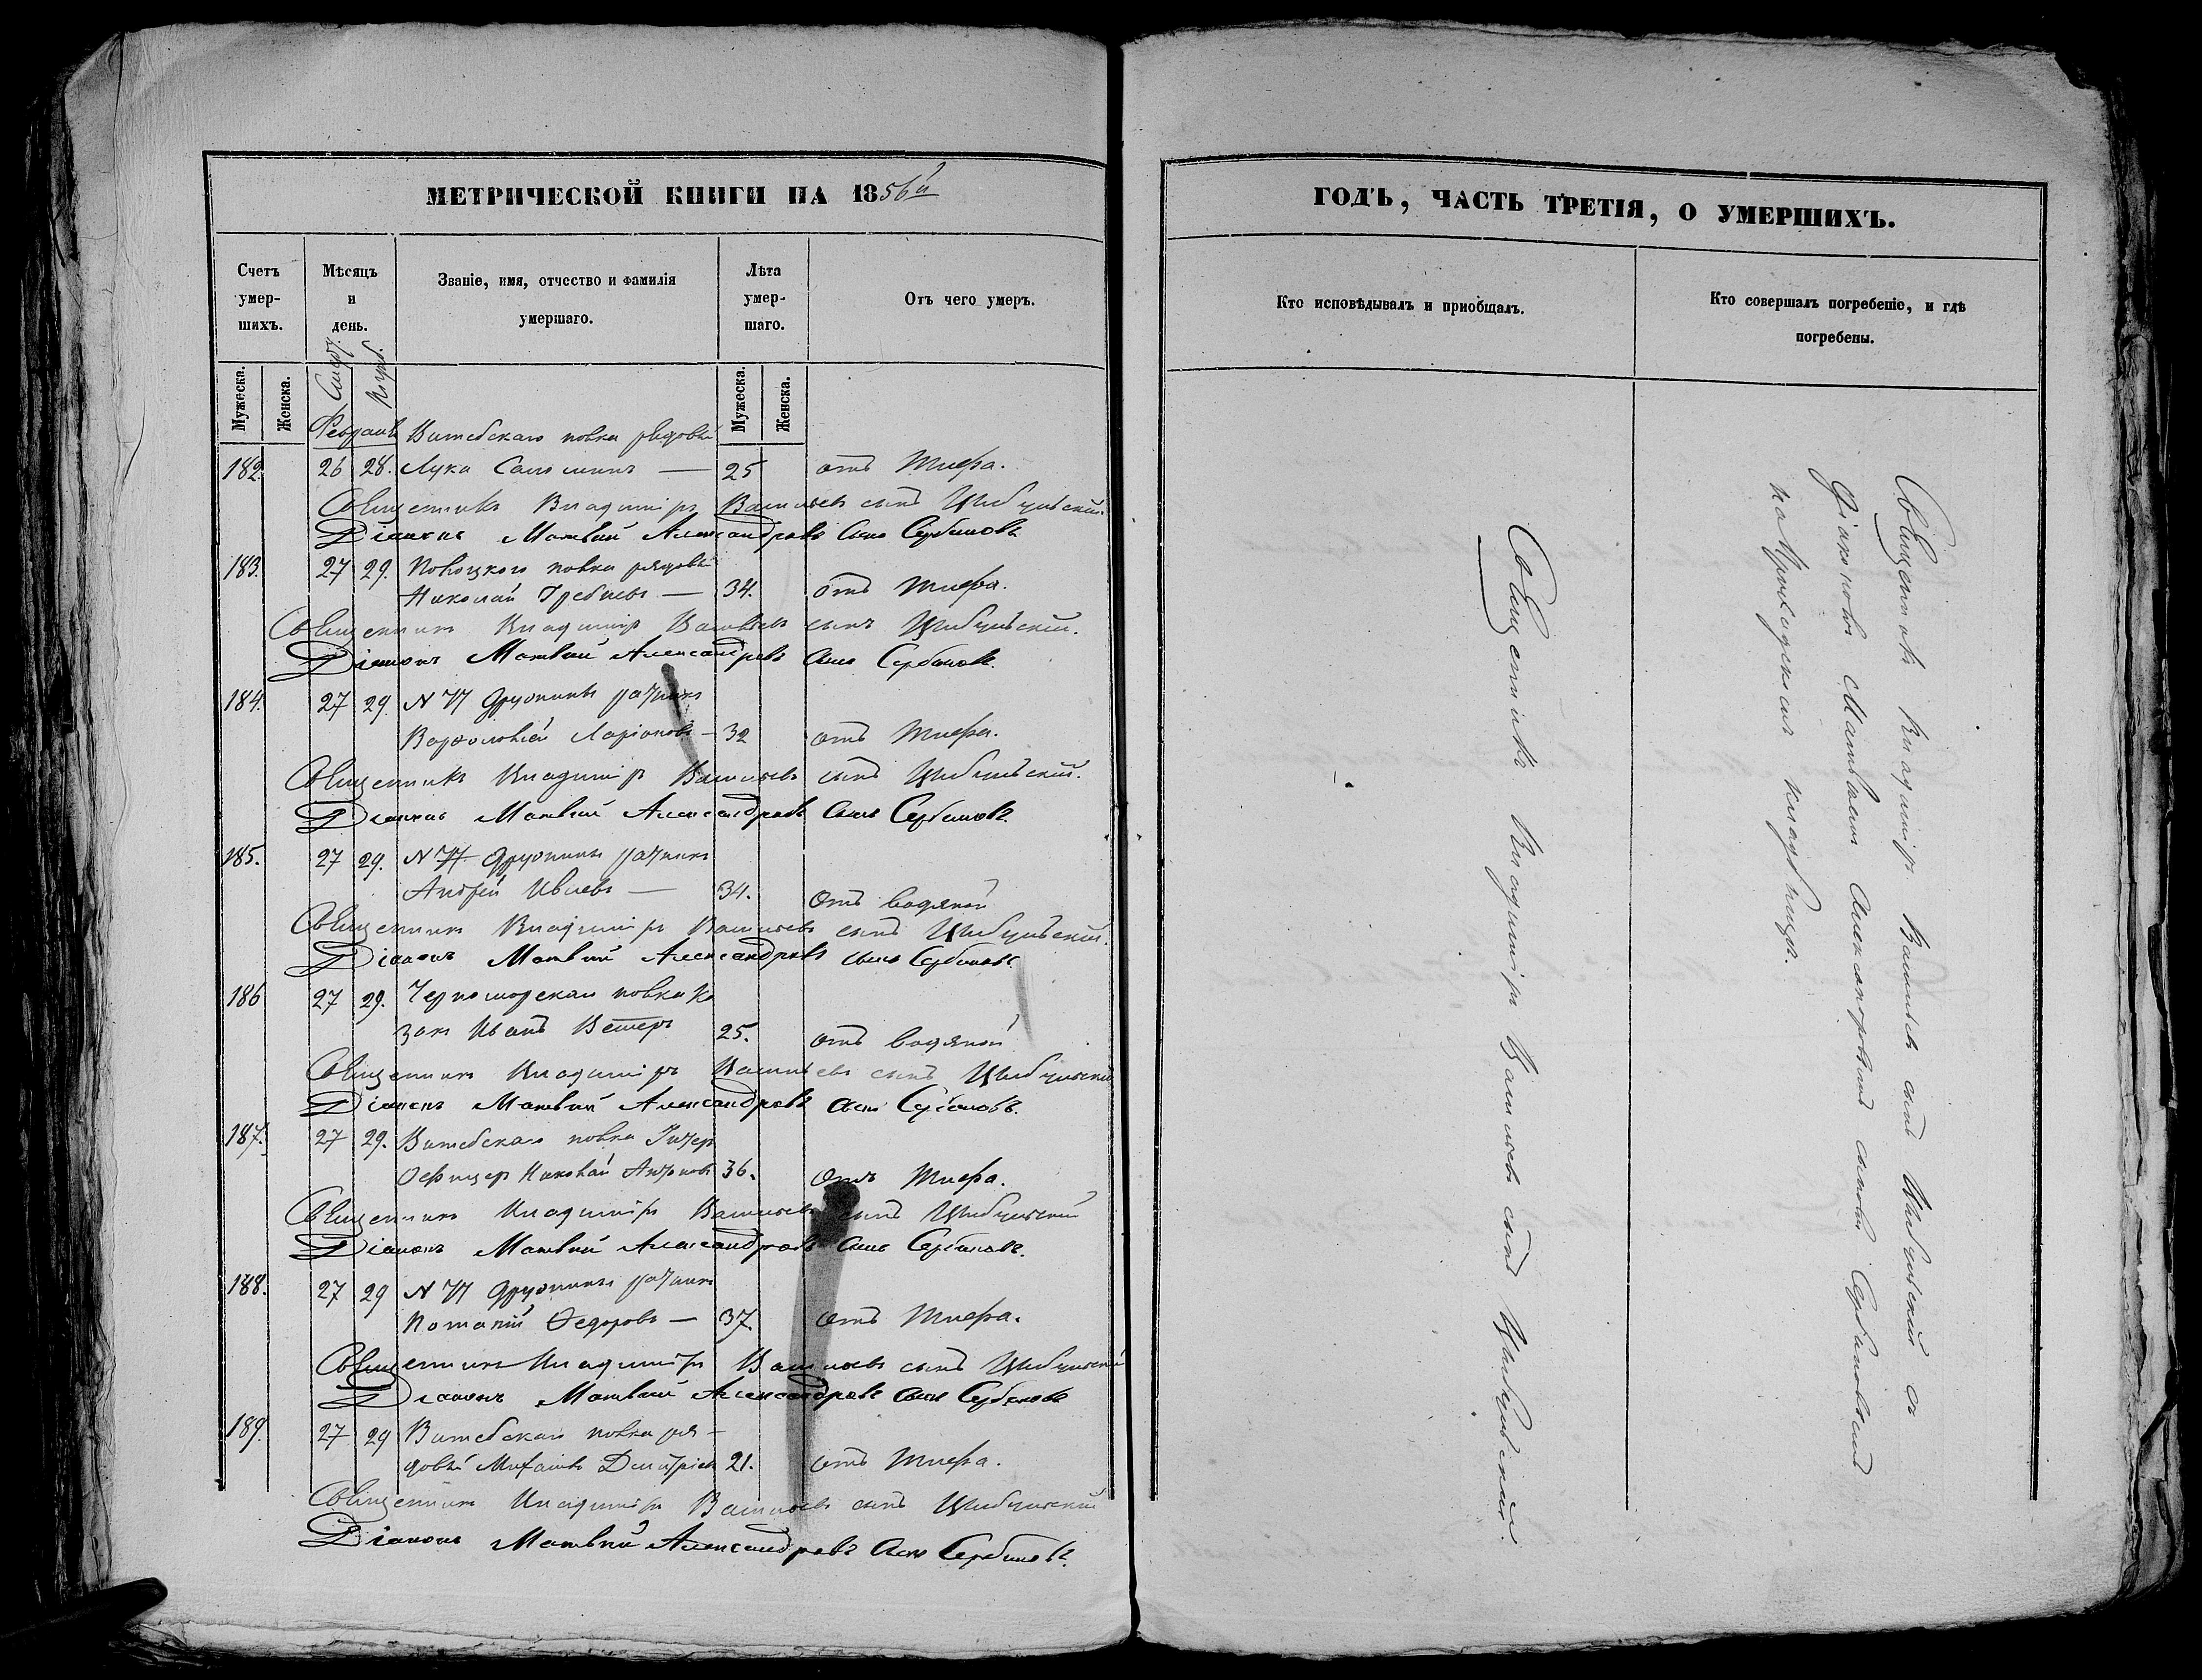 МЕТРИЧЕСКОЙ КНИГИ НА 1856й
Счетъ умер-шихъ.
Мѣсяцъ и день.
Званіе, имя, отчество и фамилія умершаго.
Лѣта умер-шаго.
Отъ чего умеръ.
Мужеска.
Женска.
Смерт.
Погреб.
Мужеска.
Женска.
Февраль Витебскаго полка рядовый
182. 26 28. Лука — 25 отъ Тифа.
Священникъ Владиміръ Васильевъ сынъ
Діаконъ Матвѣй Александровъ сынъ Сербиновъ
183. 27 29. Полоцкого полка рядовый
Николай Гребневъ — 34. отъ Тифа.
Священникъ Владиміръ Васильевъ сынъ
Діаконъ Матвѣй Александровъ сынъ Сербиновъ
184. 27 29. N 71 дружины ратникъ
Варѳоломей Ларіоновъ — 32 отъ Тифа.
Священникъ Владиміръ Васильевъ сынъ
Діаконъ Матвѣй Александровъ сынъ Сербиновъ.
185. 27 29. дружины ратникъ
Андрей Ивлевъ — 34. отъ водяной
Священникъ Владиміръ Васильевъ сынъ
Діаконъ Матвѣй Александровъ сынъ Сербиновъ
186 27 29. Черноморскаго полка Ка
закъ Иванъ Ветеръ 25. отъ водяной
Священникъ Владиміръ Васильевъ сынъ
Діаконъ Матвѣй Александровъ сынъ Сербиновъ.
187. 27 29. Витебскаго полка Унтеръ
Офицеръ Николай 36. отъ Тифа.
Священникъ Владиміръ Васильевъ сынъ
Діаконъ Матвѣй Александровъ сынъ Сербиновъ.
188. 27 29 N 71 дружины ратникъ
Потапій Ѳедоровъ — 37. отъ Тифа.
Священникъ Владиміръ Васильевъ сынъ
Діаконъ Матвѣй Александровъ сынъ Сербиновъ
189. 27 29 Витебскаго полка ря-
довый Михаилъ 21. отъ Тифа.
Священникъ Владиміръ Васильевъ сынъ
Діаконъ Матвѣй Александровъ сынъ Сербиновъ.
ГОДЪ, ЧАСТЬ ТРЕТІЯ, О УМЕРШИХЪ.
Кто исповѣдывалъ и пріобщалъ.
Кто совершалъ погребеніе, и гдѣ погребены.
Священникъ Владиміръ Васильевъ сынъ
Священникъ Владиміръ Васильевъ сынъ съ
Діакономъ Матвѣемъ Александровымъ сыномъ Сербиновымъ
на Приходскомъ кладбищѣ.